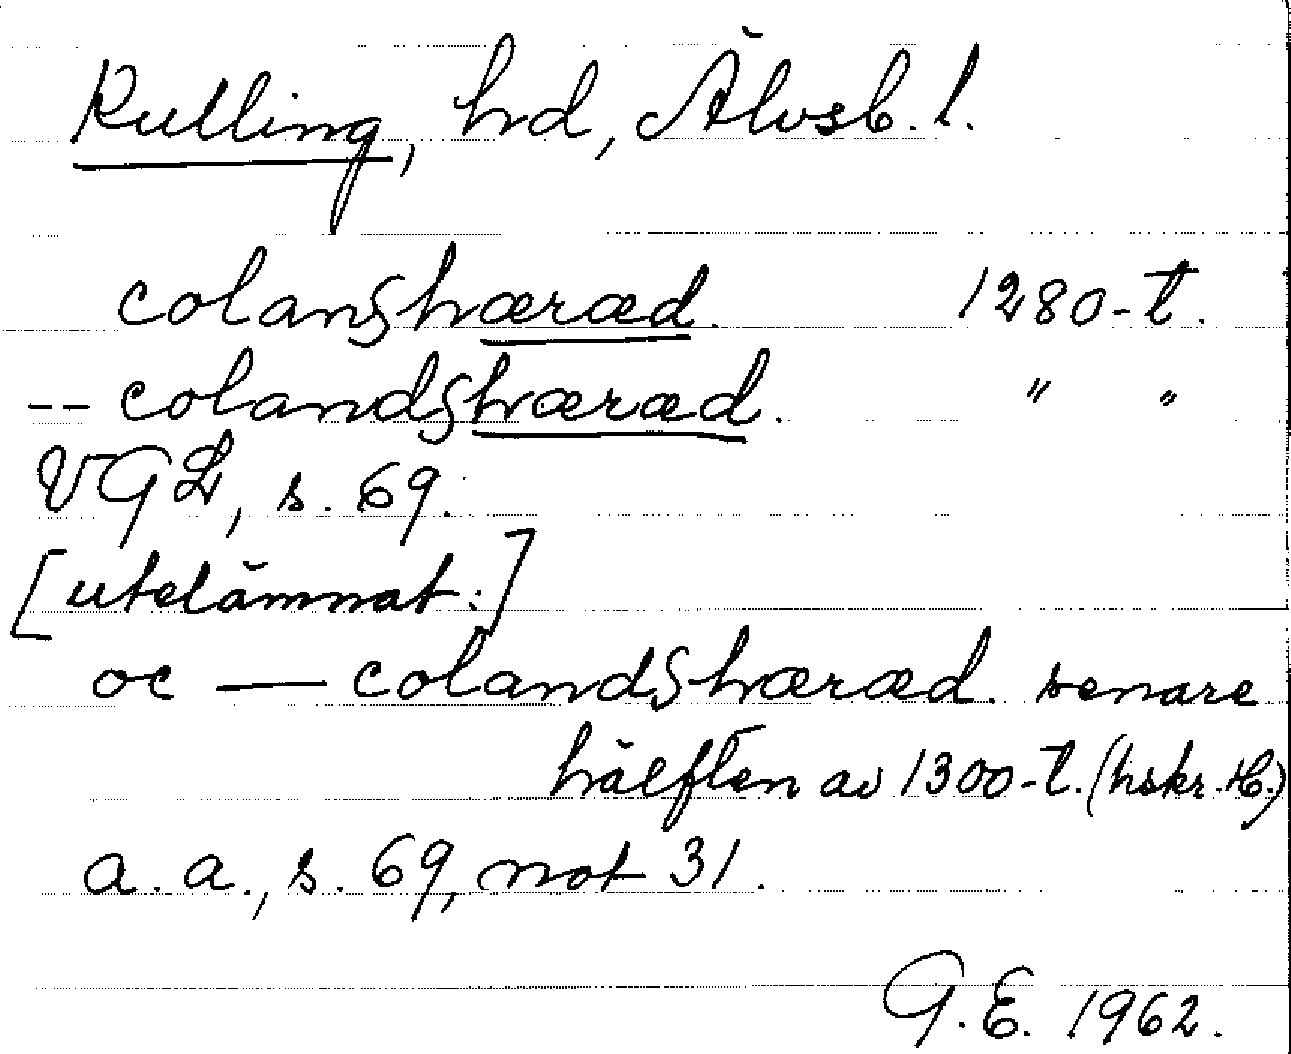 Kulling, hd, Älvsb. l.
colanshæræd. 1280-t.
-- colandshæræd. " "
VGL, s. 69.
[utelämnat:]
oc — colandshæræd. senare
hälften av 1300-t. (hskr. H.)
a. a., s. 69, not 31.
G.E. 1962.